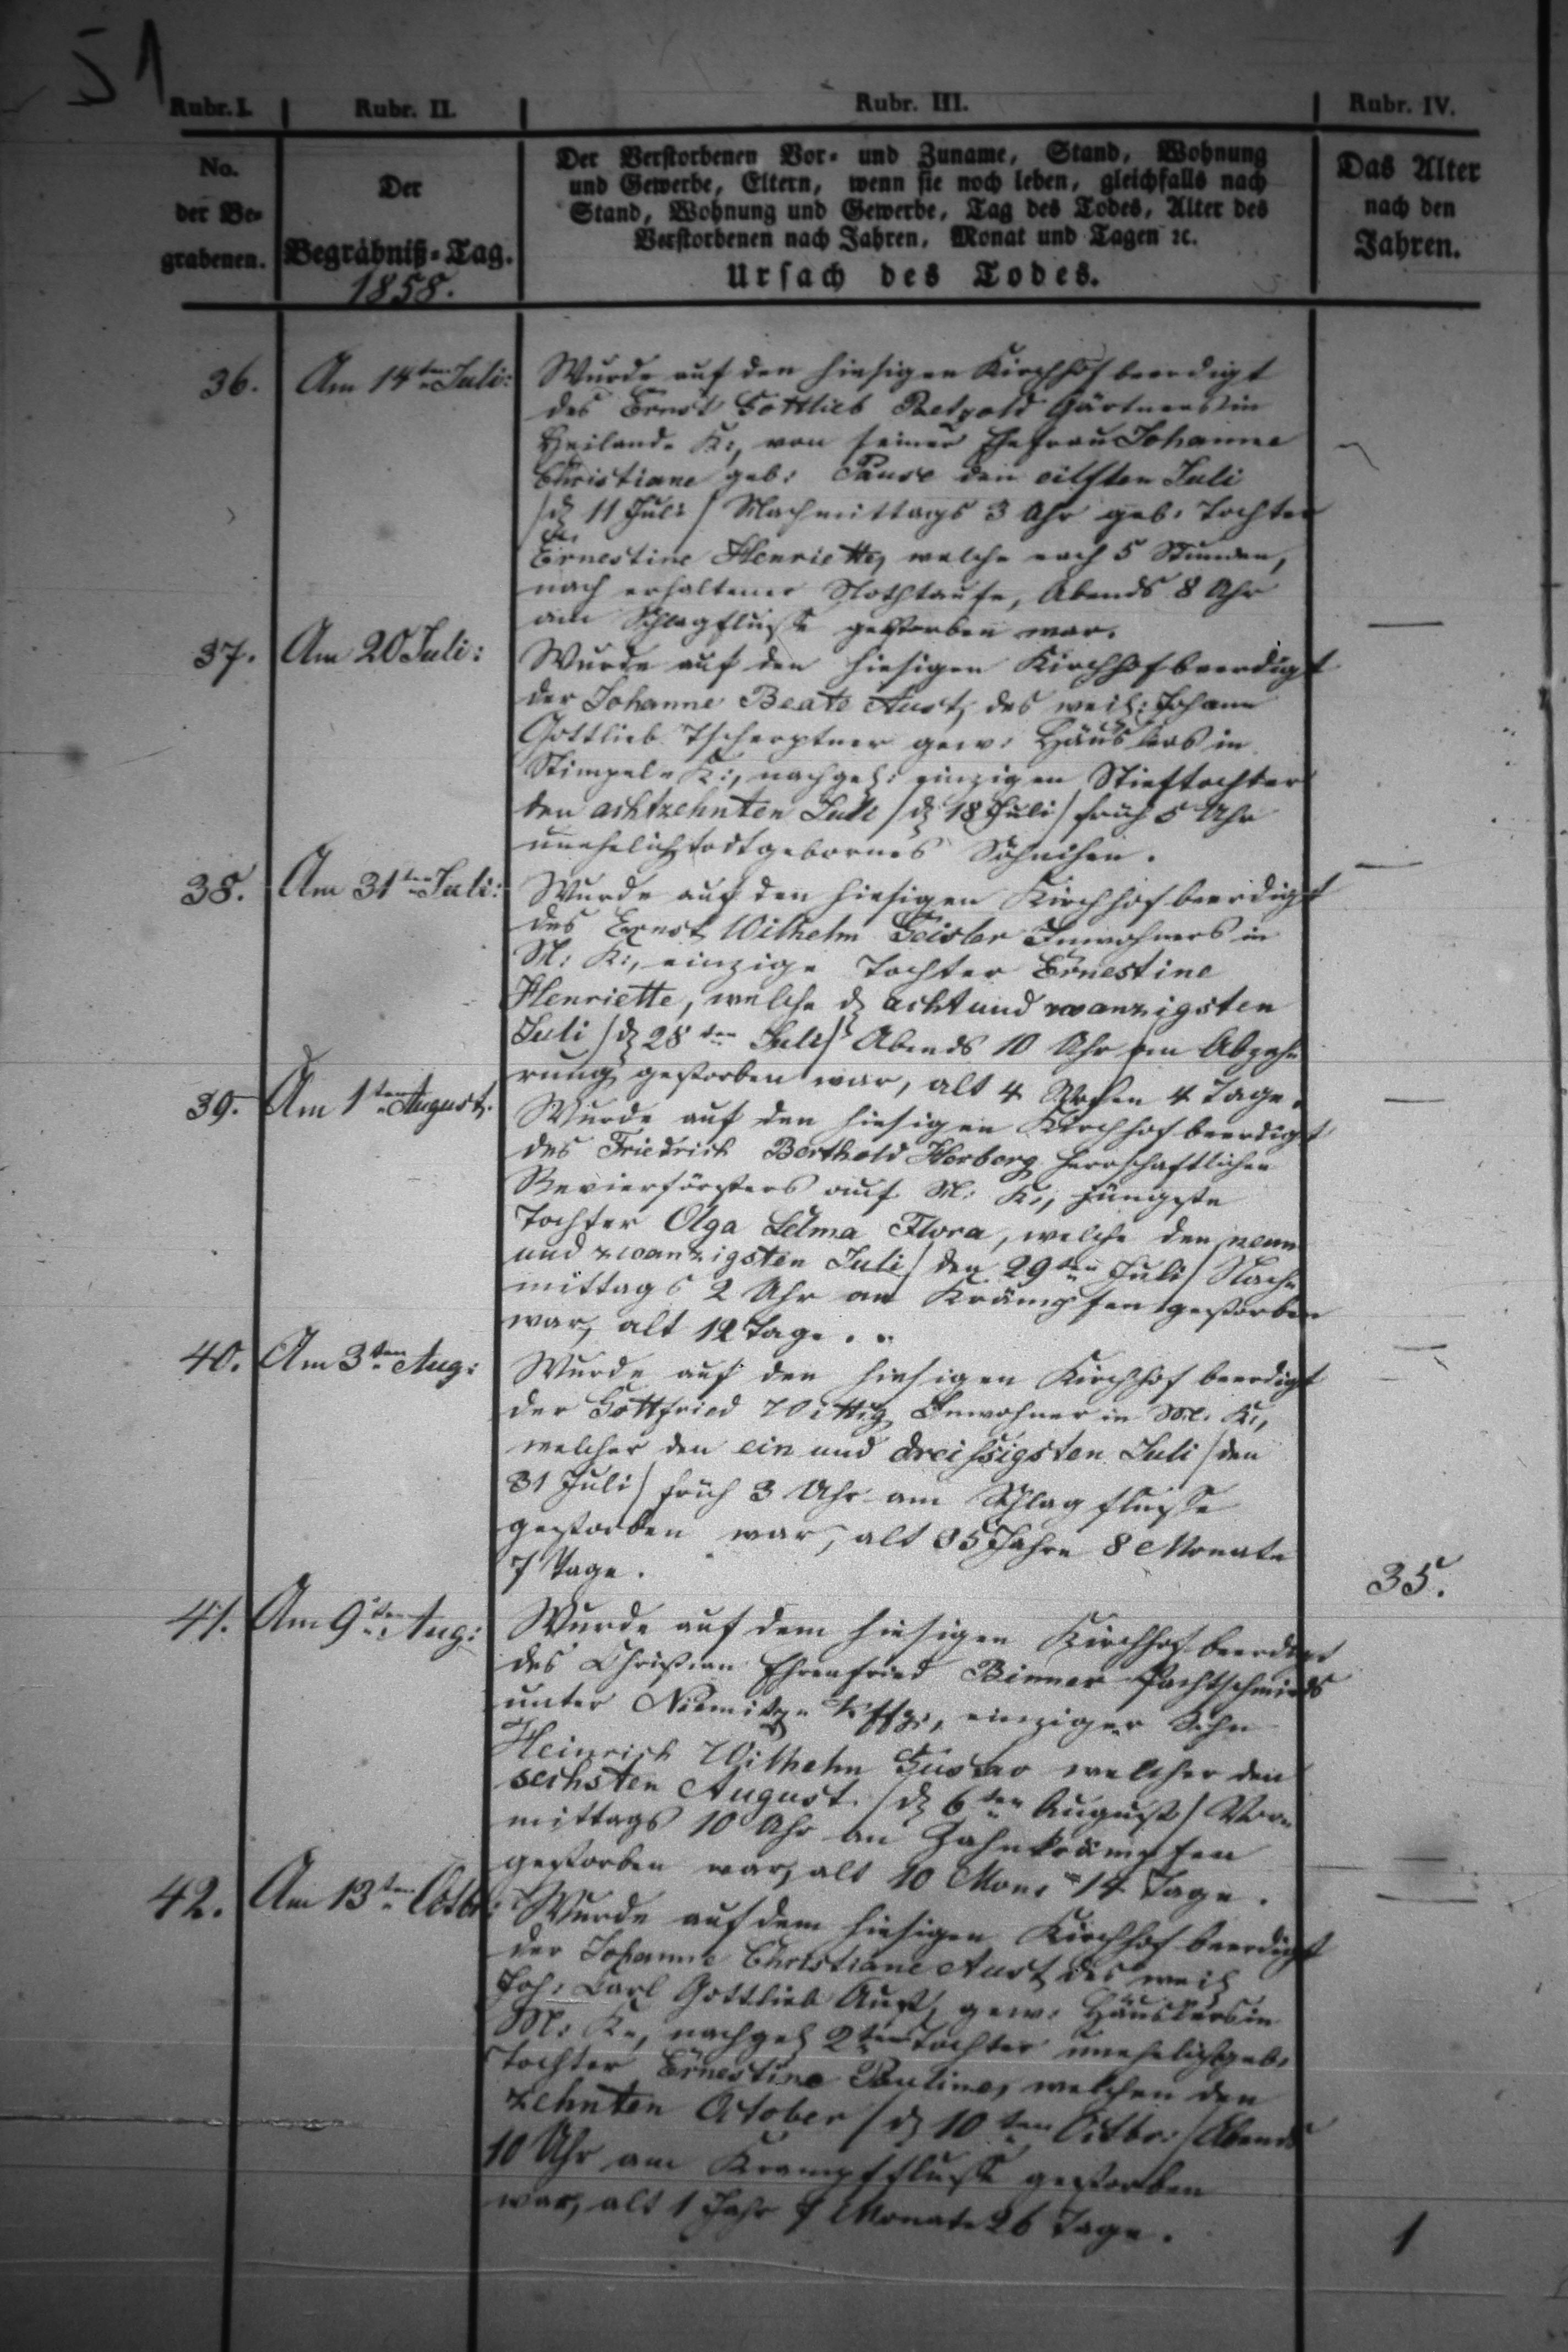 51
Rubr. I. Rubr. II. Rubr. III. Rubr. IV.
No. der Be- grabenen.
Der Begräbniß-Tag. 1858.
Der Verstorbenen Vor- und Zuname, Stand, Wohnung
und Gewerbe, Eltern, wenn sie noch leben, gleichfalls nach
Stand, Wohnung und Gewerbe, Tag des Todes, Alter des
Verstorbenen nach Jahren, Monat und Tagen ꝛc.
Ursach des Todes.
Das Alter nach den Jahren.
36. Am 14ten Juli: Wurde auf den hiesigen Kirchhof beerdigt
des Ernst Gottlieb Gärtners in
K:, von seiner Ehefrau Johanne
Christiane geb: Pause den eilften Juli
/d 11 Juli/ Nachmittags 3 Uhr geb: Tochter
Ernestine Henriette, welche nach 5 Stunden,
nach erhaltener Nothtaufe, Abends 8 Uhr
am Schlagflusse gestorben war. —
37. Am 20 Juli: Wurde auf den hiesigen Kirchhof beerdigt
der Johanne Beate Aust, des weil: Johann
Gottlieb gew: Häuslers in
K:, nachgel: einzigen Stieftochter
den achtzehnten Juli /d 18 Juli/ früh 5 Uhr
unehelich todtgebornes Söhnchen. —
38. Am 31ten Juli: Wurde auf den hiesigen Kirchhof beerdigt
des Ernst Wilhelm Geisler Inwohners in
M: K:, einzige Tochter Ernestine
Henriette, welche d acht und zwanzigsten
Juli /d 28ten Juli/ Abends 10 Uhr an Abzeh-
rung gestorben war, alt 4 Wochen 4 Tage. —
39. Am 1ten August. Wurde auf den hiesigen Kirchhof beerdigt
des Friedrich Berthold herrschaftlichen
Revierförsters auf M: K:, jüngste
Tochter Olga Selma Flora, welche den neun
und zwanzigsten Juli /den 29ten Juli/ Nach-
mittags 2 Uhr an Krämpfen gestorben
war, alt 12 Tage. —
40. Am 3ten Aug: Wurde auf den hiesigen Kirchhof beerdigt
der Gottfried Wittig Inwohner in M: K:,
welcher den ein und dreißigsten Juli /den
31 Juli/ früh 3 Uhr am Schlagflusse
gestorben war, alt 35 Jahre 8 Monate
7 Tage. 35.
41. Am 9ten Aug: Wurde auf dem hiesigen Kirchhof beerdigt
des Christian Ehrenfried Binner Pachtschmieds
unter einziger Sohn
Heinrich Wilhelm Gustav welcher den
sechsten August. /d 6ten August/ Vor-
mittags 10 Uhr an Zahnkrämpfen
gestorben war, alt 10 Mon: 14 Tage. —
42. Am 13ten Octbr: Wurde auf dem hiesigen Kirchhof beerdigt
der Johanne Christiane Aust, des weil
Joh: Carl Gottlieb Aust, gew: Häuslers in
M: K:, nachgel 2ten Tochter unehelich geb:
Tochter Ernestine Pauline, welchen den
zehnten October /d 10ten Octbr:/ Abends
10 Uhr am Krampfflusse gestorben
war, alt 1 Jahr Monate 26 Tage. 1